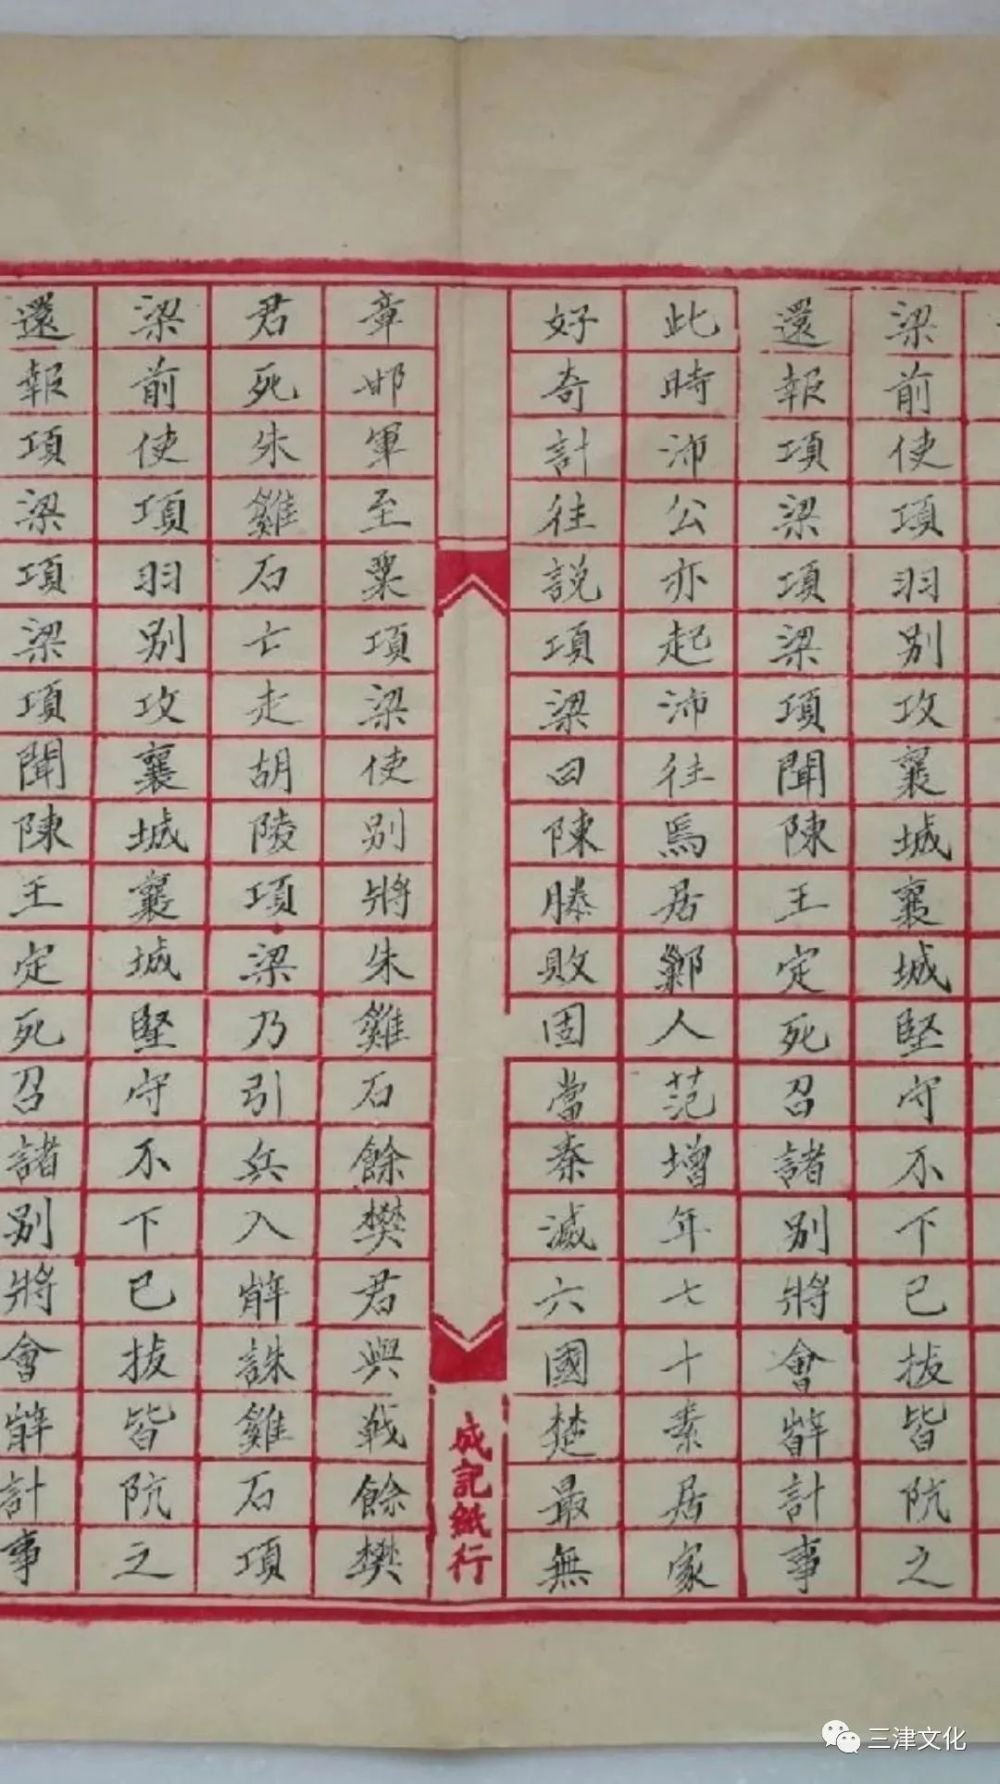 梁前使項羽别攻襄城襄城堅守不下已拔皆阬之
還報項梁項梁項聞陳王定死召諸别將會辥計事
此時沛公亦起沛往焉居鄛人范增年七十素居家
好奇計往説項梁曰陳勝敗固當秦滅六國楚最無
成記紙行
章邯軍至栗項梁使别將朱雞石餘樊君與戰餘樊
君死朱雞石亡走胡陵項梁乃引兵入辥誅雞石項
梁前使項羽别攻襄城襄城堅守不下已拔皆阬之
還報項梁項梁項聞陳王定死召諸别將會辥計事
三津文化